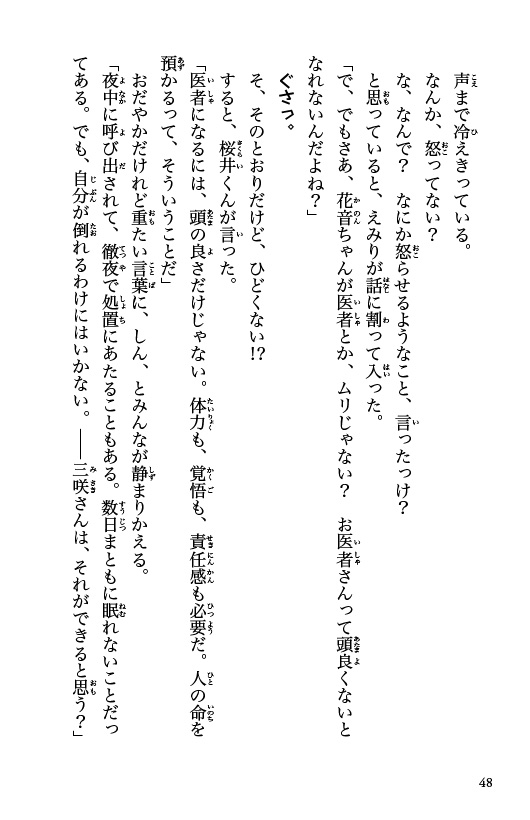 声まで冷えきっている。
なんか、怒ってない？
な、なんで？　なにか怒らせるようなこと、言ったっけ？
と思っていると、えみりが話に割って入った。
「で、でもさあ、花音ちゃんが医者とか、ムリじゃない？　お医者さんって頭良くないと
なれないんだよね？」
ぐさっ。
そ、そのとおりだけど、ひどくない!?
すると、桜井くんが言った。
「医者になるには、頭の良さだけじゃない。体力も、覚悟も、責任感も必要だ。人の命を
預かるって、そういうことだ」
おだやかだけれど重たい言葉に、しん、とみんなが静まりかえる。
「夜中に呼び出されて、徹夜で処置にあたることもある。数日まともに眠れないことだっ
てある。でも、自分が倒れるわけにはいかない。――三咲さんは、それができると思う？」
48